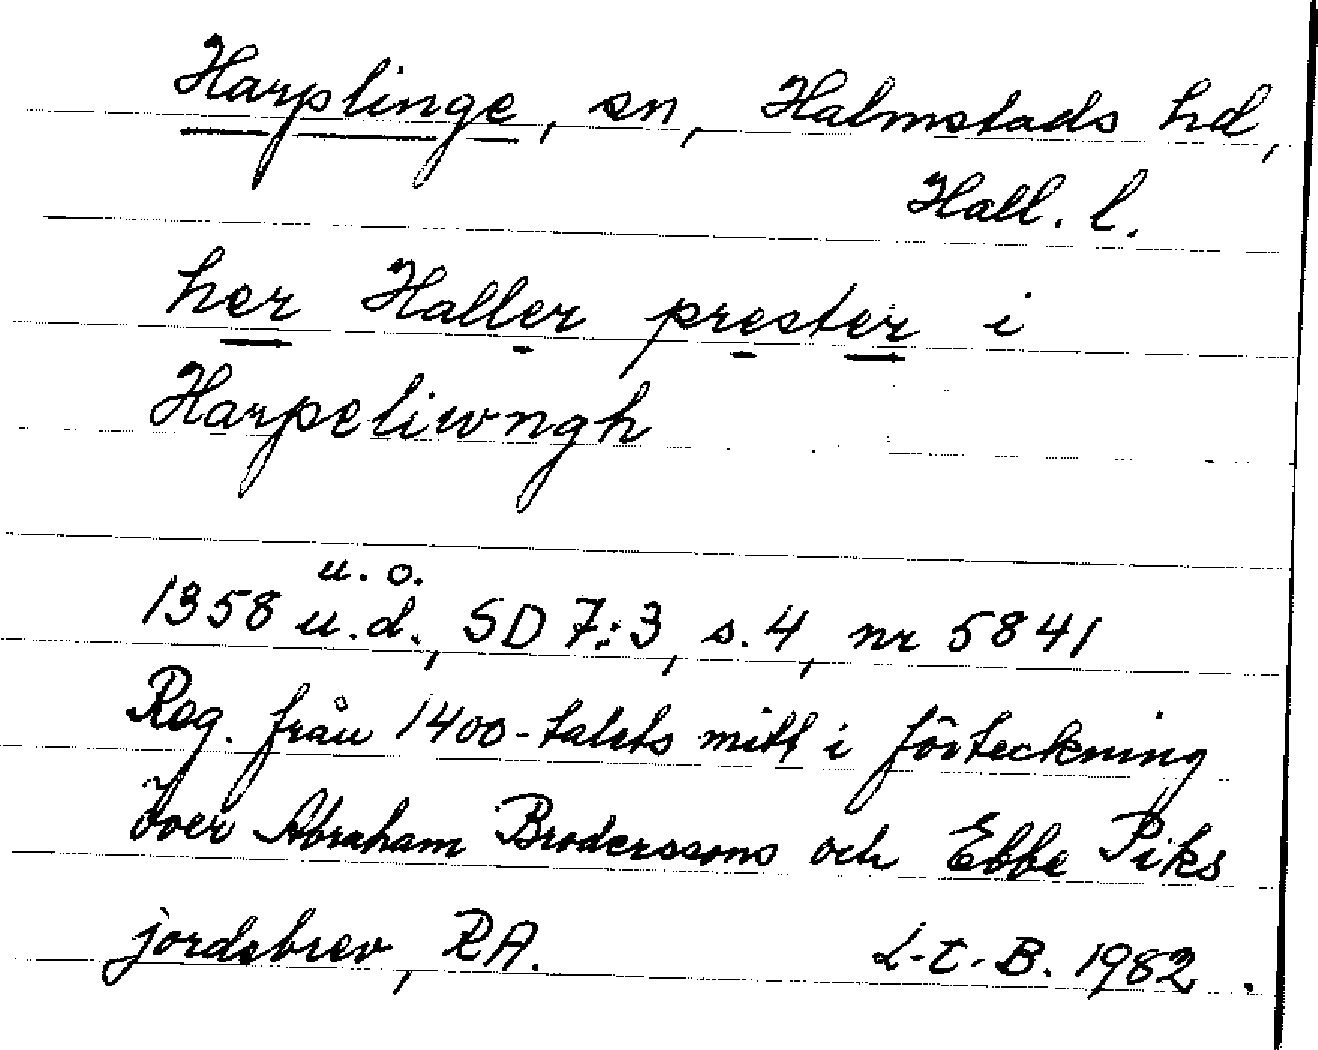 Harplinge, sn, Halmstads hd,
Hall. l.
her Haller prester i
Harpeliwngh
u. o.
1358 u.d., SD 7:3, s.4, nr 5841
Reg. från 1400-talets mitt i förteckning
över Abraham Broderssons och Ebbe Piks
jordebrev, RA. L-E.B. 1982.